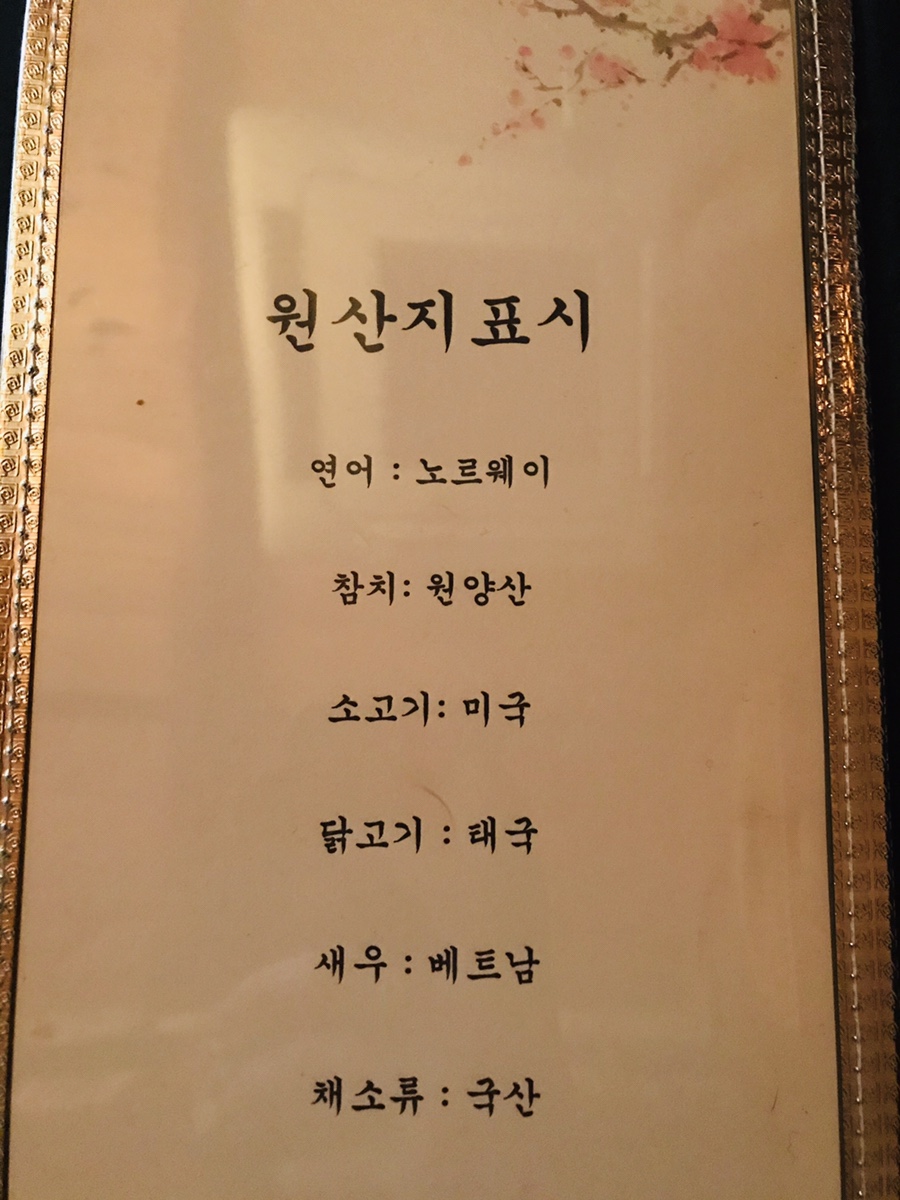 원산지표시
연어 : 노르웨이
참치: 원양산
소고기: 미국
닭고기 : 태국
새우 : 베트남
채소류 : 국산